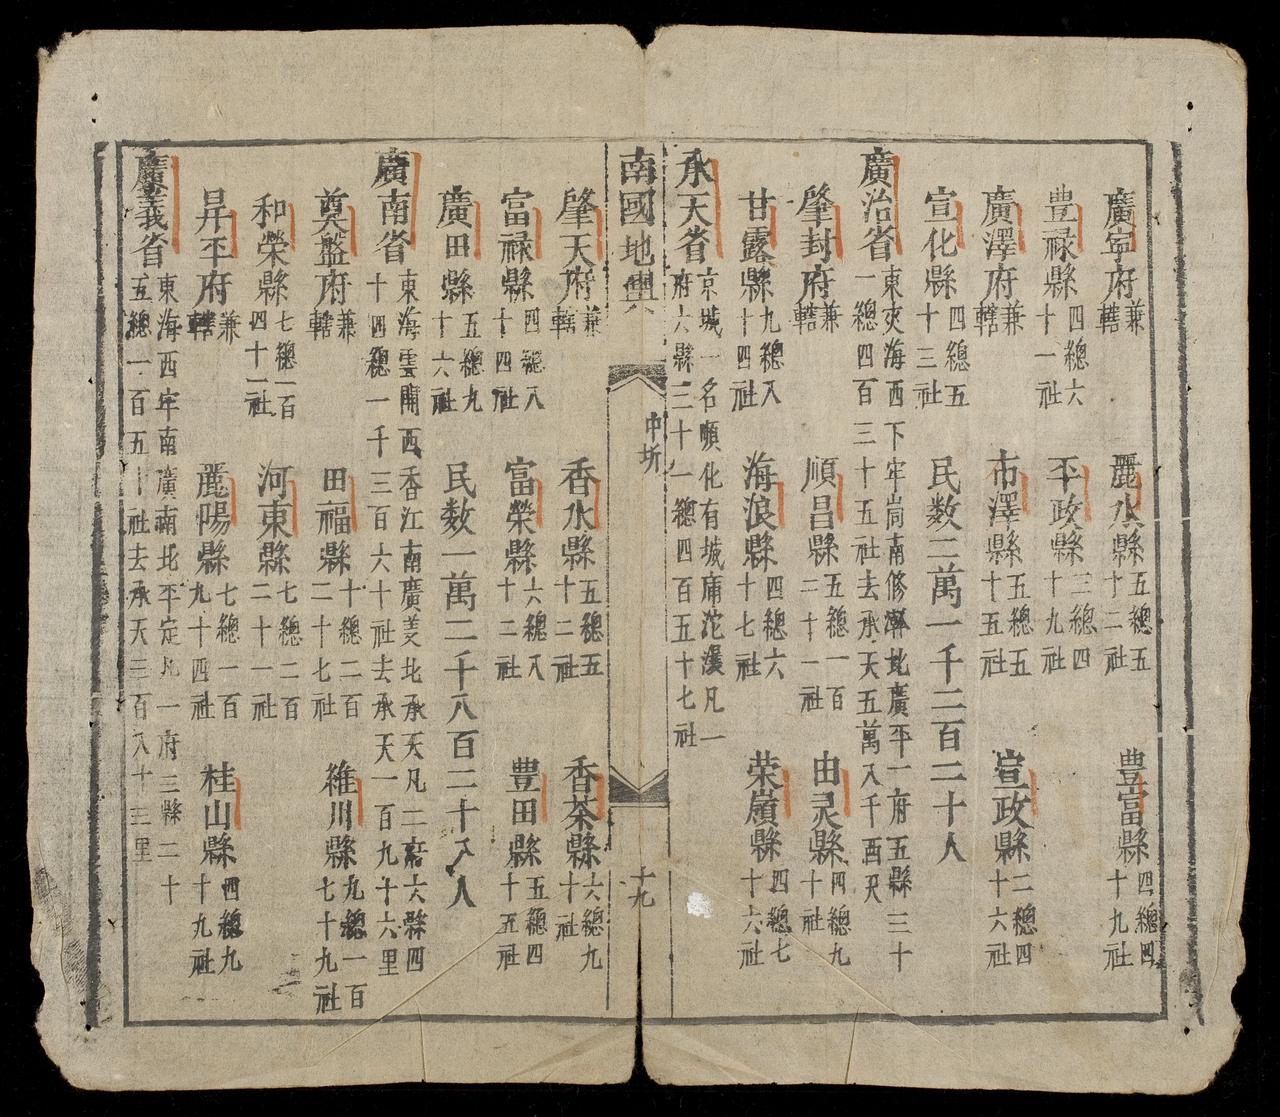 廣寧府兼轄 麗水縣五總五十二社 豊富縣四總四十九社
豊禄縣四總六十一社 平政縣三總四十九社
廣澤府兼轄 市澤縣五總五十五社 宣政縣二總四十六社
宣化縣四總五十三社 民数二萬一千二百二十人
廣治省東夾海西下牢崗南修瀞北廣平一府五縣三十一總四百三十五社去承天五萬八千酉尺
肇封府兼轄 順昌縣五總一百二十一社 由灵縣四總九十社
甘露縣九總八十四社 海浪縣四總六十七社 荣嶺縣四總七十六社
承天省京城一名順化有城庸沱瀼凡一府六縣三十一總四百五十七社
南國地輿 中圻 十九
肇天府兼轄 香水縣五總五十二社 香茶縣六總九十社
富禄縣四總八十四社 富榮縣六總八十二社 豊田縣五總四十五社
廣田縣五總九十六社 民数一萬二千八百二十八人
廣南省東海雲關西香江南廣義北承天凡二府六縣四十四總一千三百六十社去承天一百九十六里
奠盤府兼轄 田福縣十總二百二十七社 維川縣九總一百七十九社
和榮縣七總一百四十一社 河東縣七總二百二十一社
昇平府兼轄 麗陽縣七總一百九十四社 桂山縣四總九十九社
廣義省東海西牢南廣南北平定凡一府三縣二十五總一百五十社去承天三百八十三里